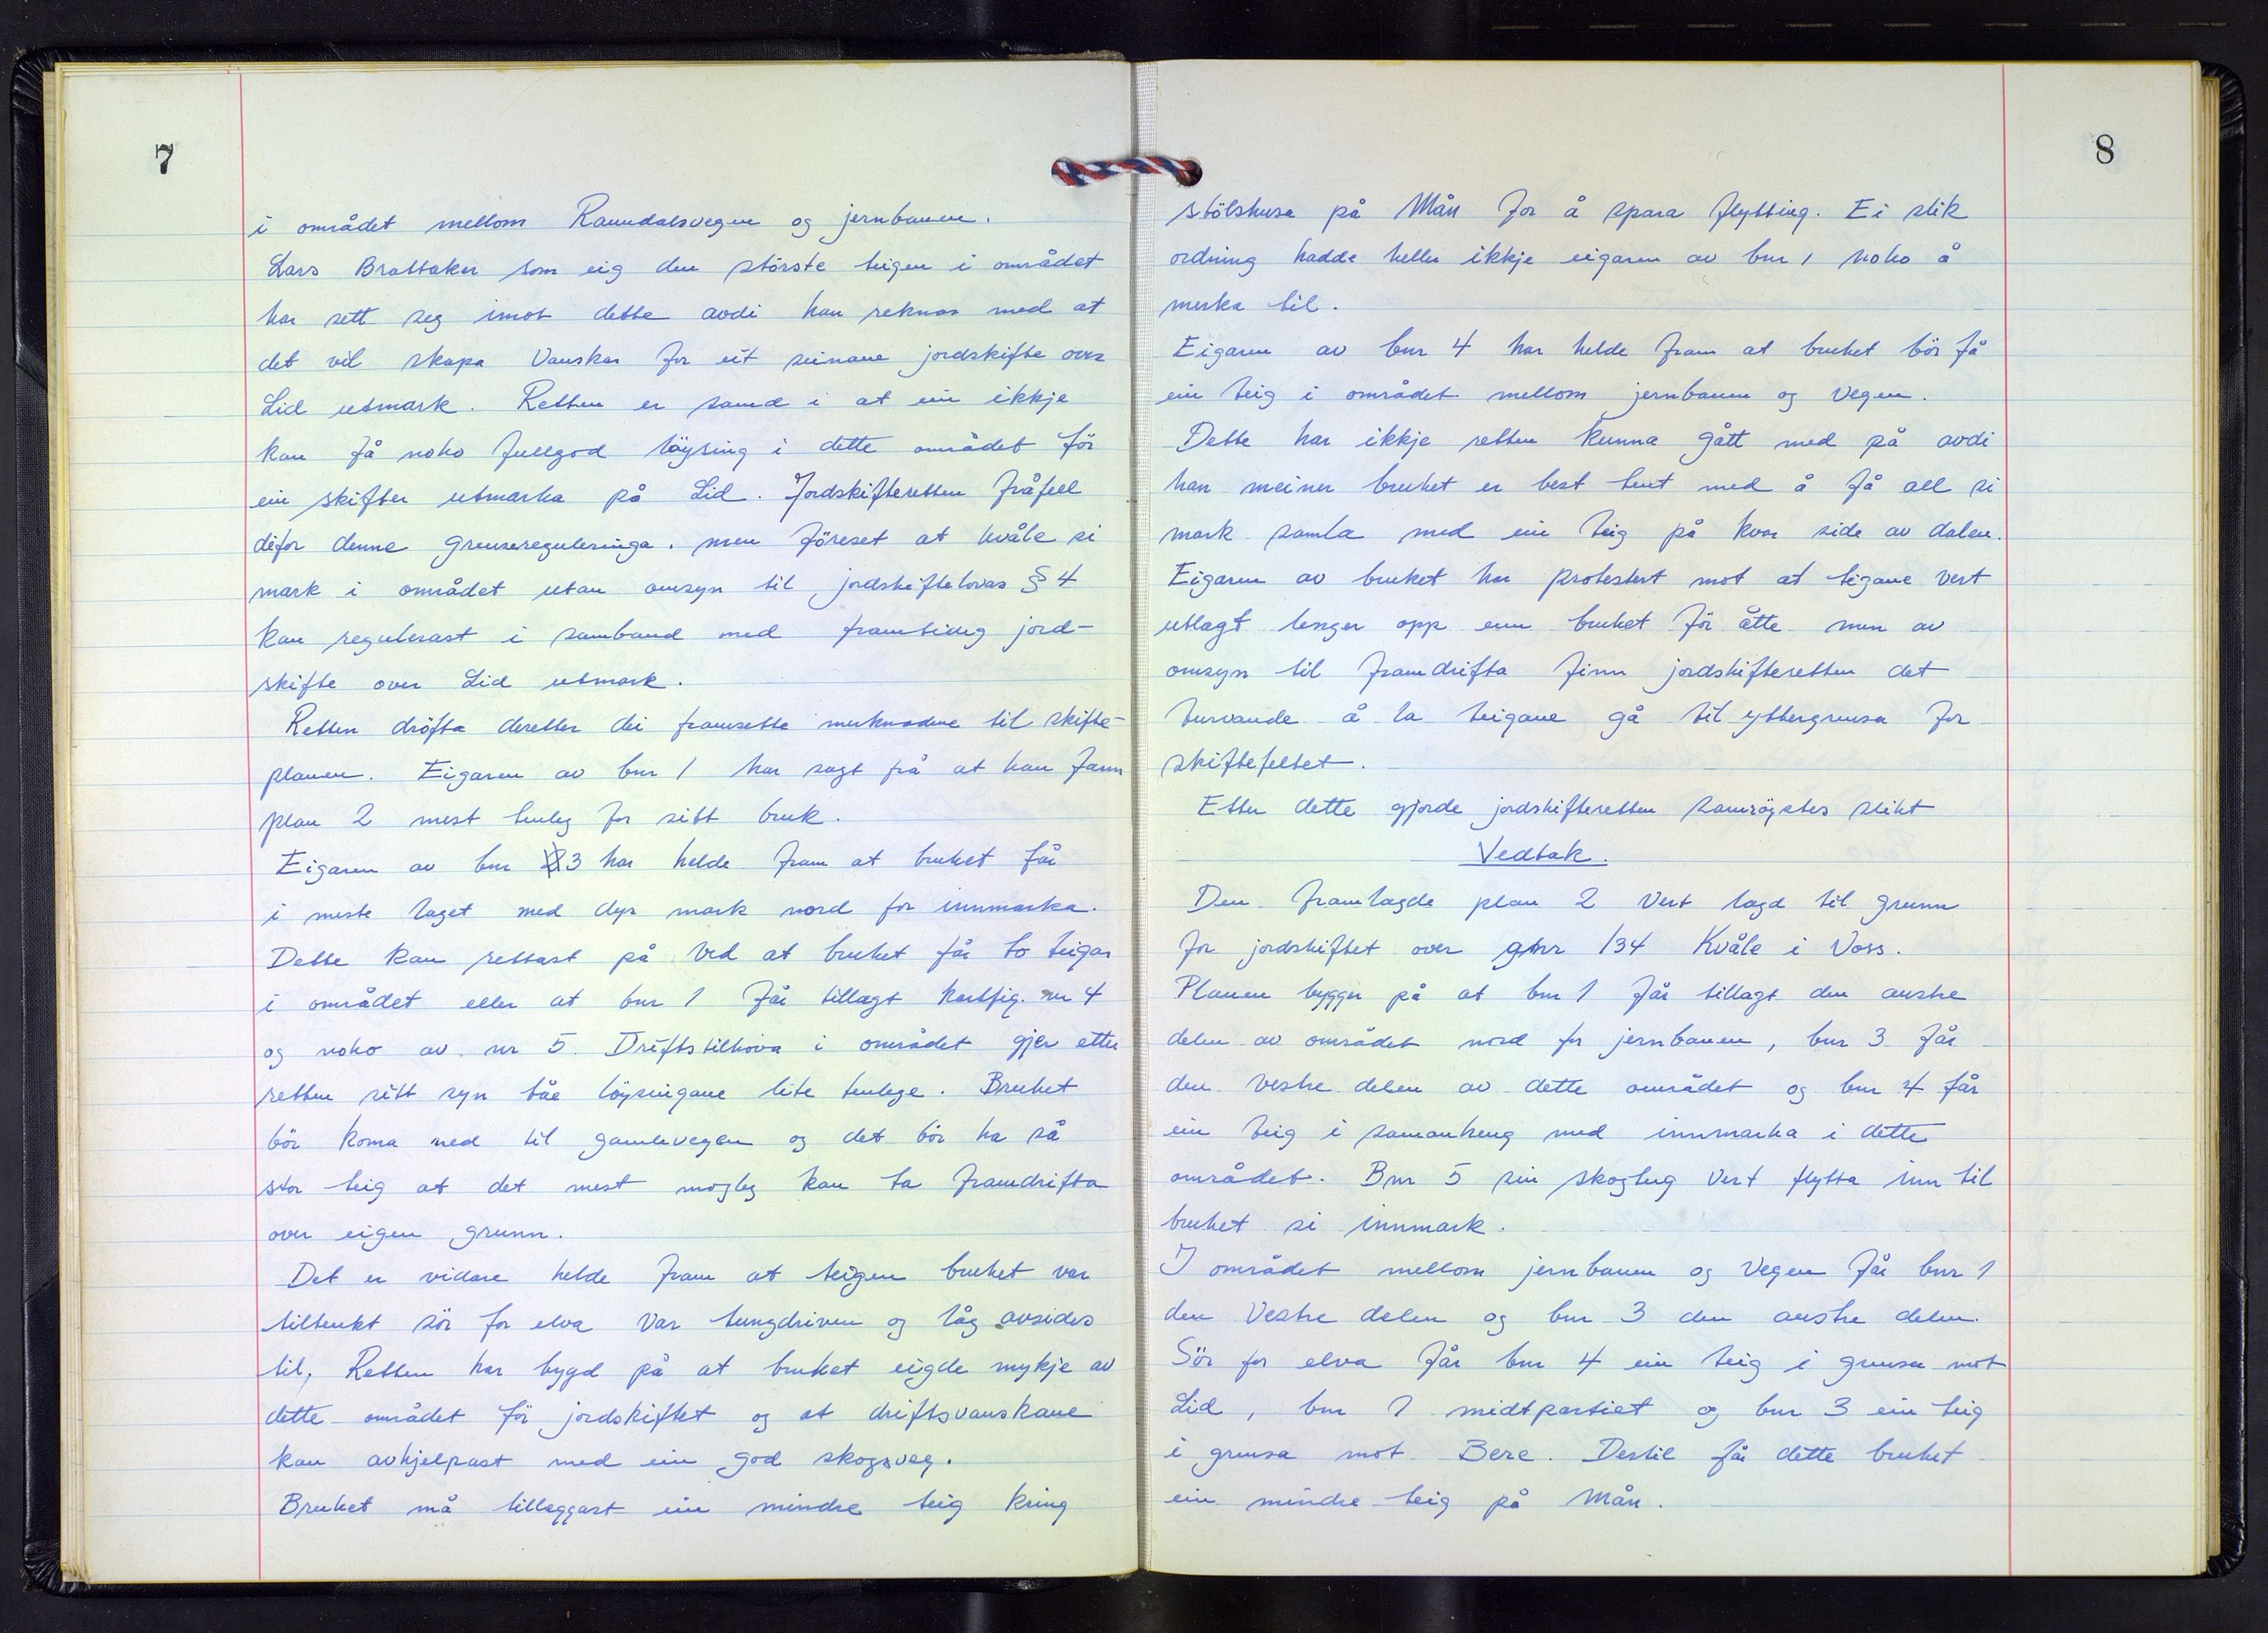 7
i området mellom Raundalsvegen og jernbanen.
Lars Brattaker som eig den störste teigen i området
har sett seg imot dette avdi han reknar med at
det vil skapa vanskar for eit seinare jordskifte over
Lid utmark. Retten er samd i at ein ikkje
kan få noko fullgod löysing i dette området för
ein skifter utmarka på Lid. Jordskifteretten fråfell
difor denne grensereguleringa. men föreset at kvåle si
mark i området utan omsyn til jordskiftelovas § 4
kan regulerast i samband med framtidig jord-
skifte over Lid utmark.
Retten dröfta deretter dei framsette merknadene til skifte-
planen. Eigaren av bnr 1 har sagt frå at han fann
plan 2 mest tenleg for sitt bruk.
Eigaren av bnr 3 har helde fram at bruket får
i meste laget med dyr mark nord for innmarka.
Dette kan rettast på ved at bruket får to teigar
i området eller at bnr 1 får tillagt kartfig. nr 4
og noko av nr 5. Driftstilhöva i området gjer etter
retten sitt syn båe löysingane lite tenlege. Bruket
bör koma ned til gamlevegen og det bör ha så
stor teig at det mest mogleg kan ta framdrifta
over eigen grunn.
Det er vidare helde fram at teigen bruket var
tiltenkt sör for elva var tungdriven og låg avsides
til. Retten har bygd på at bruket eigde mykje av
dette området för jordskiftet og at driftsvanskane
kan avhjelpast med ein god skogsveg.
Bruket må tilleggast ein mindre teig kring
8
stölshusa på Mån for å spara flytting. Ei slik
ordning hadde heller ikkje eigaren av bnr 1 noko å
merka til.
Eigaren av bnr 4 har helde fram at bruket bör få
ein teig i området mellom jernbanen og vegen.
Dette har ikkje retten kunna gått med på avdi
han meiner bruket er best tent med å få all si
mark samla med ein teig på kvar side av dalen.
Eigaren av bruket har protestert mot at teigane vert
utlagt lenger opp enn bruket för åtte men av
omsyn til framdrifta finn jordskifteretten det
turvande å la teigane gå til yttergrensa for
skiftefeltet.
Etter dette gjorde jordskifteretten samröystes slikt
Vedtak.
Den framlagde plan 2 vert lagd til grunn
for jordskiftet over gnr 134 Kvåle i Voss.
Planen bygger på at bnr 1 får tillagt den austre
delen av området nord for jernbanen, bnr 3 får
den vestre delen av dette området og bnr 4 får
ein teig i samanheng med innmarka i dette
området. Bnr 5 sin skogteig vert flytta inn til
bruket si innmark.
I området mellom jernbanen og vegen får bnr 1
den vestre delen og bnr 3 den austre delen.
Sör for elva får bnr 4 ein teig i grensa mot
Lid, bnr 1 midtpartiet og bnr 3 ein teig
i grensa mot Bere. Dertil får dette bruket
ein mindre teig på Mån.